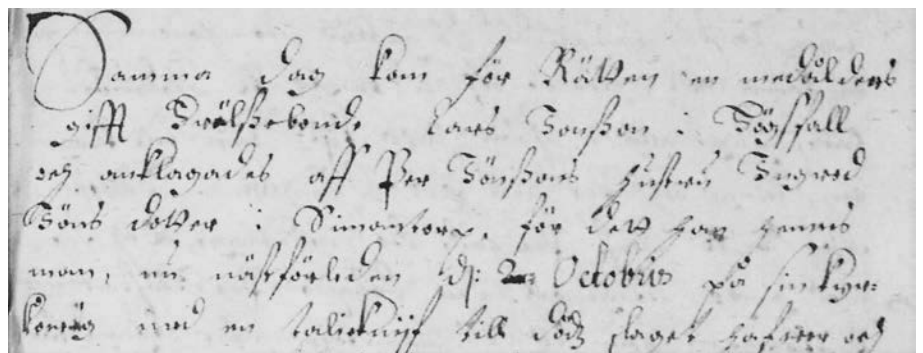 Samma dag kom för Rätten en medålders
gifft Frälssebonde Lars Jonsson i
och anklagades aff Per Jönssons hustru Ingred
Jöns dotter i Simontorp, för dett han hennes
man, nu nästförleden d: 2 Octobris på sin kyr=
kowäg med en tallieknijff till dödz slaget hafwer och